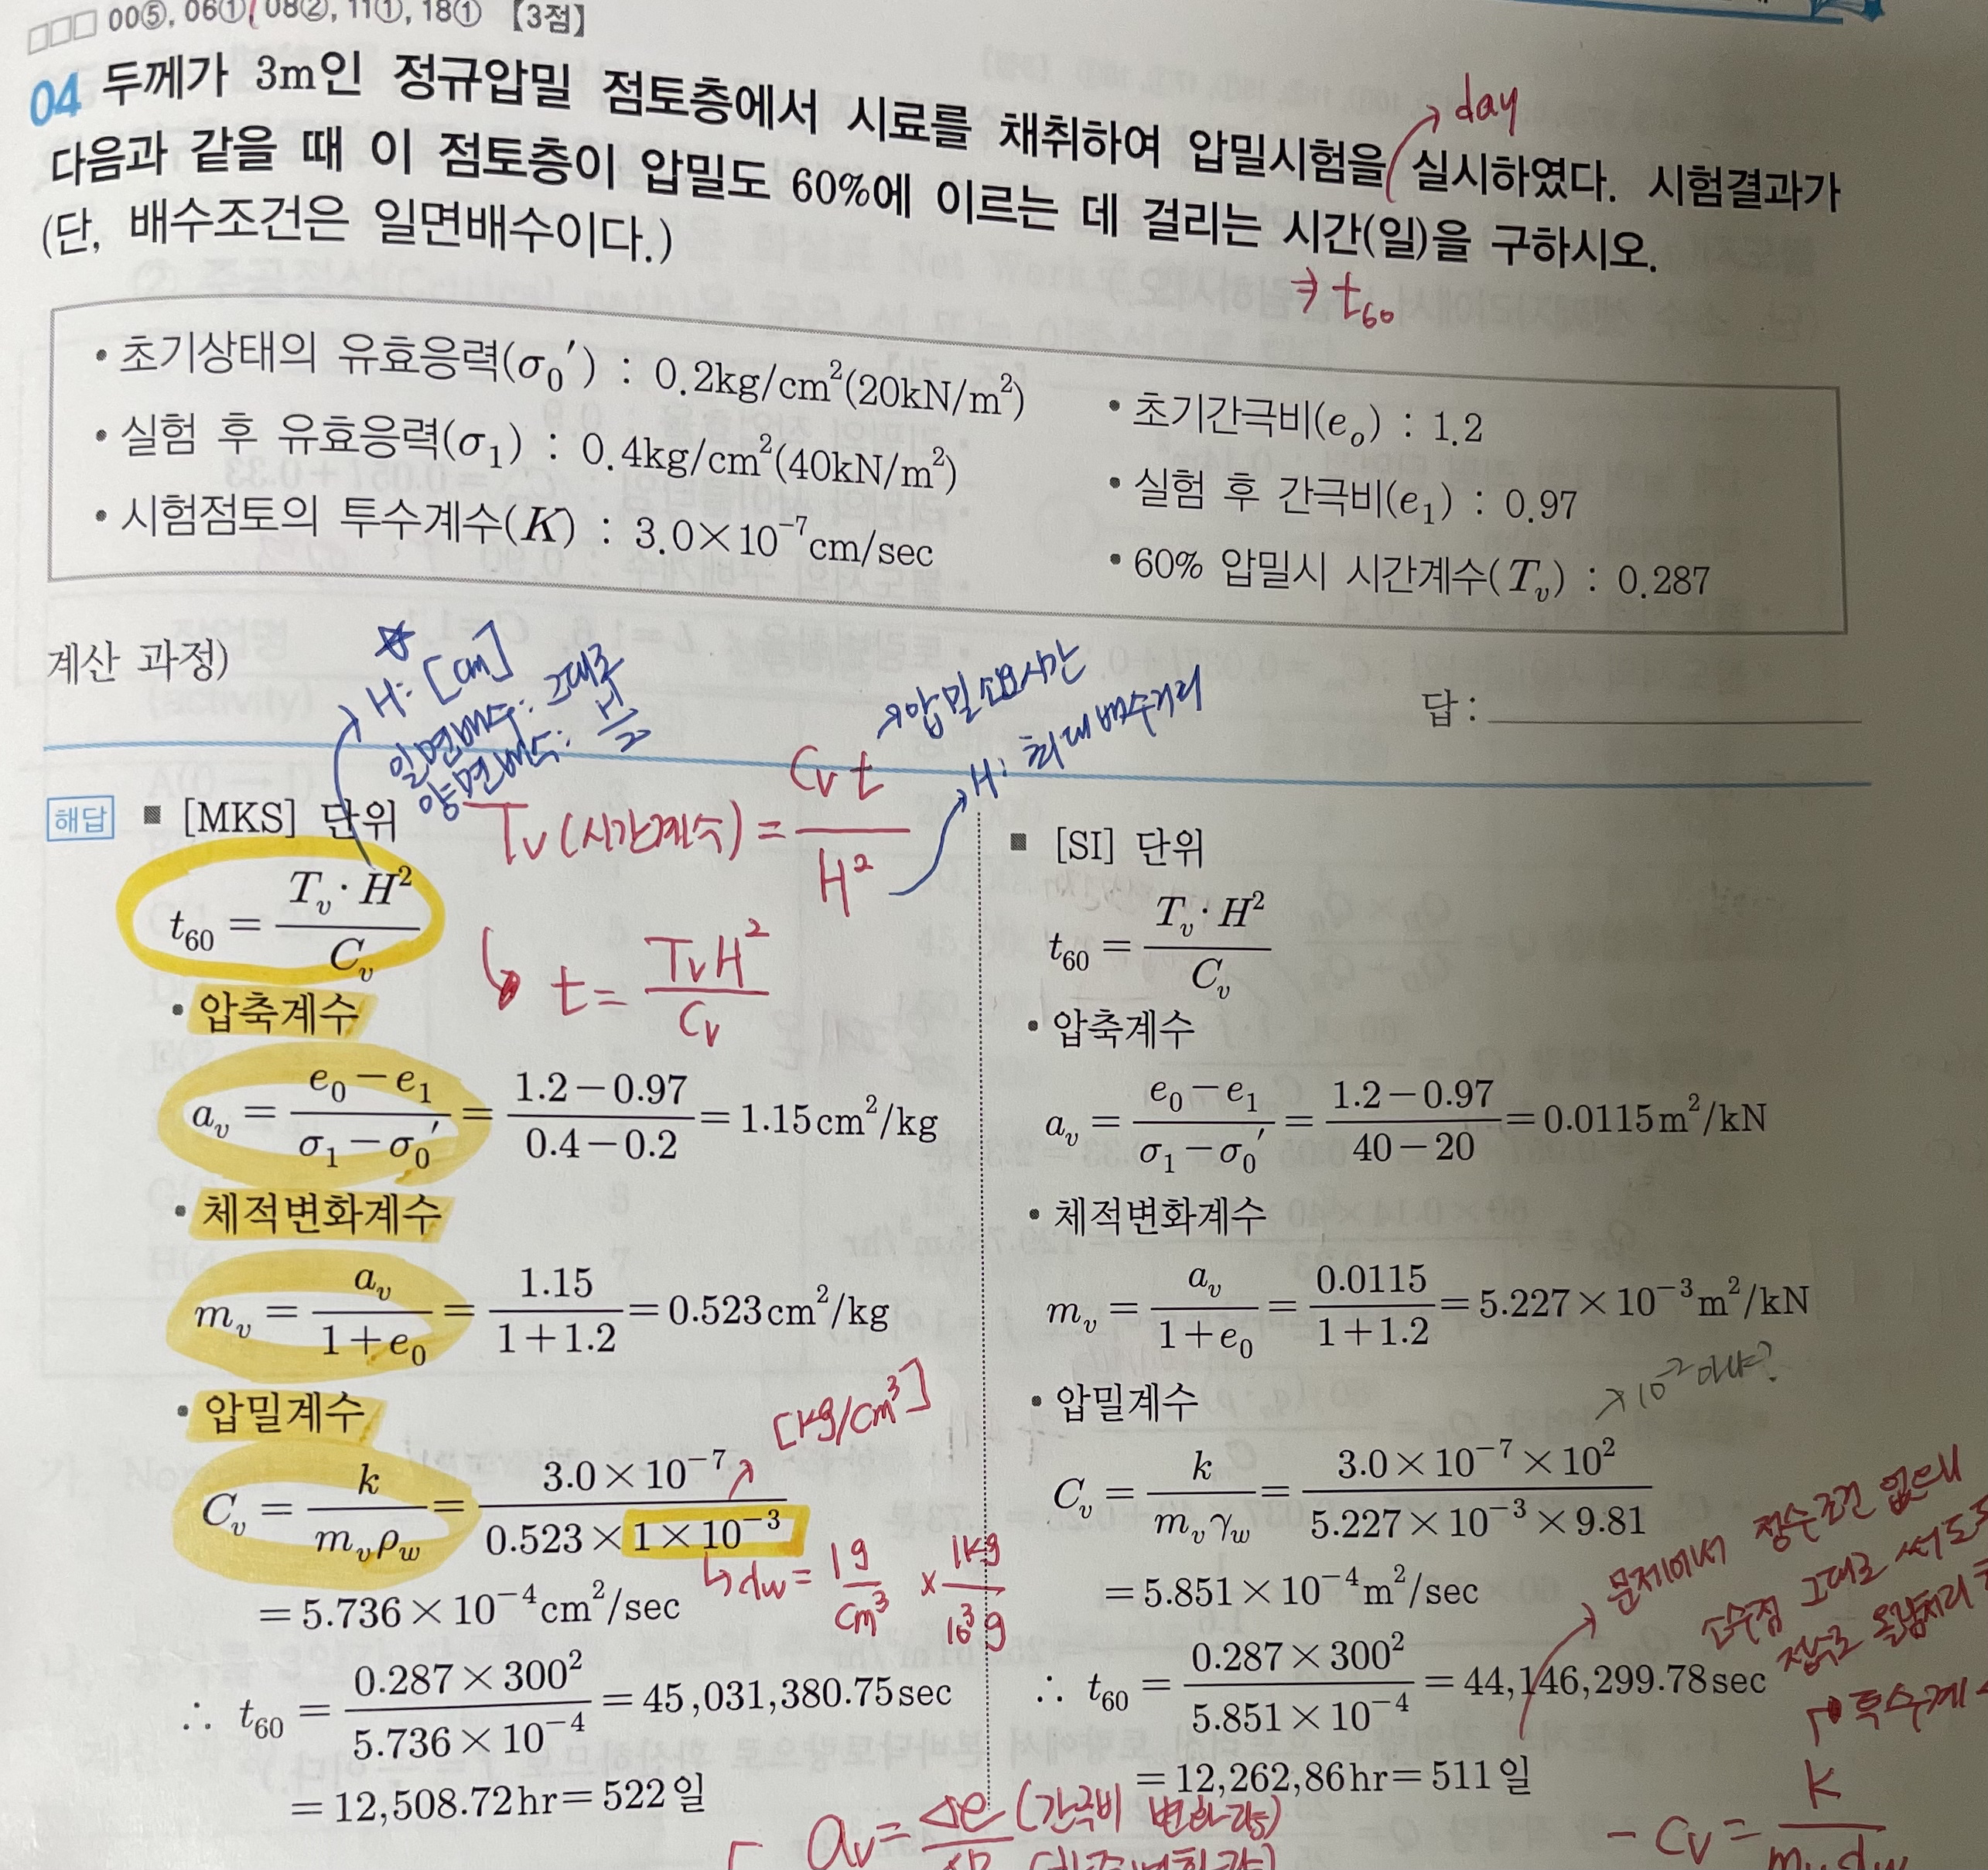 □□□ 00⑤, 06①, 08②, 11①, 18① 【3점】
04 두께가 3m인 정규압밀 점토층에서 시료를 채취하여 압밀시험을 실시하였다. 시험결과가
→ day
다음과 같을 때 이 점토층이 압밀도 60%에 이르는 데 걸리는 시간(일)을 구하시오.
(단, 배수조건은 일면배수이다.)
⇒ t₆₀
• 초기상태의 유효응력(σ₀′) : 0.2kg/cm²(20kN/m²)
• 초기간극비(eₒ) : 1.2
• 실험 후 유효응력(σ₁) : 0.4kg/cm²(40kN/m²)
• 실험 후 간극비(e₁) : 0.97
• 시험점토의 투수계수(K) : 3.0×10⁻⁷cm/sec
• 60% 압밀시 시간계수(Tᵥ) : 0.287
계산 과정)
답 :
☆
H: [cm]
일면배수: 그대로
양면배수: H/2
→ 압밀소요시간
H: 최대배수거리
Tv (시간계수) = Cv t / H²
↳ t = TvH² / Cv
해답 ■ [MKS] 단위
t₆₀ = Tᵥ · H² / Cᵥ
• 압축계수
aᵥ = (e₀ − e₁) / (σ₁ − σ₀′) = (1.2 − 0.97) / (0.4 − 0.2) = 1.15cm²/kg
• 체적변화계수
mᵥ = aᵥ / (1 + e₀) = 1.15 / (1 + 1.2) = 0.523cm²/kg
• 압밀계수
[kg/cm³]
Cᵥ = k / (mᵥρ_w) = 3.0×10⁻⁷ / (0.523 × 1×10⁻³)
↳ dw = 1g/cm³ × 1kg/10³g
= 5.736×10⁻⁴cm²/sec
∴ t₆₀ = 0.287×300² / 5.736×10⁻⁴ = 45,031,380.75sec
= 12,508.72hr = 522일
■ [SI] 단위
t₆₀ = Tᵥ · H² / Cᵥ
• 압축계수
aᵥ = (e₀ − e₁) / (σ₁ − σ₀′) = (1.2 − 0.97) / (40 − 20) = 0.0115m²/kN
• 체적변화계수
mᵥ = aᵥ / (1 + e₀) = 0.0115 / (1 + 1.2) = 5.227×10⁻³m²/kN
• 압밀계수
→ 10⁻² 아냐?
Cᵥ = k / (mᵥγ_w) = 3.0×10⁻⁷×10² / (5.227×10⁻³×9.81)
= 5.851×10⁻⁴m²/sec
∴ t₆₀ = 0.287×300² / 5.851×10⁻⁴ = 44,146,299.78sec
= 12,262,86hr = 511일
문제에서 정수조건 없으니
소수점 그대로 써도
올림처리
투수계
aᵥ = Δe (간극비 변화량)
− Cv = K / mv dw